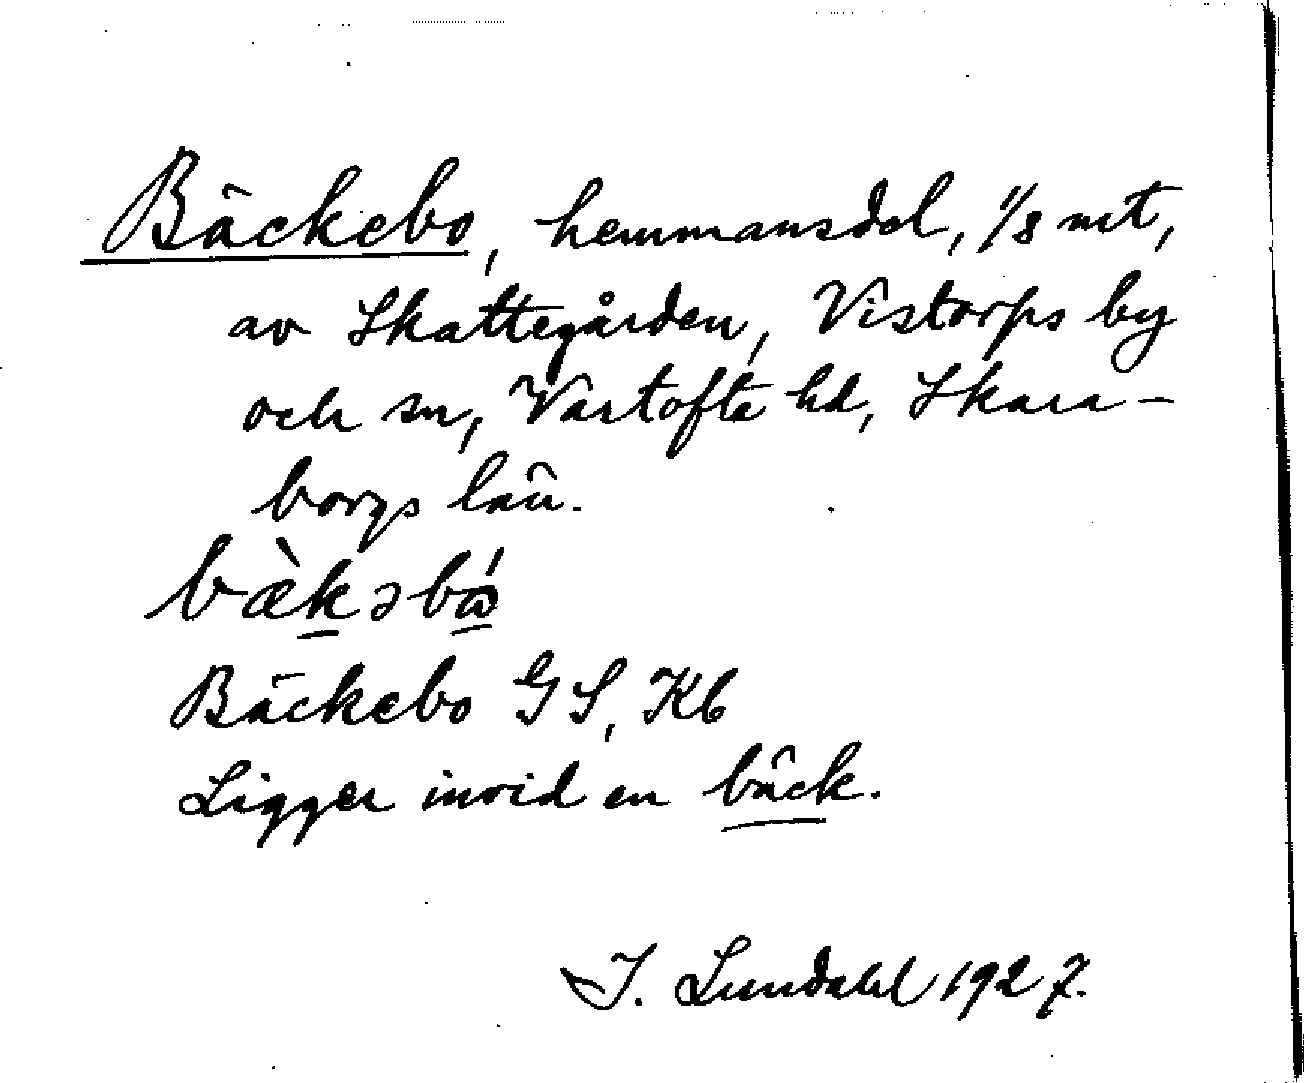 Bäckebo, hemmansdel, 1/8 mt,
av Skattegården, Vistorps by
och sn, Vartofta hd, Skara-
borgs län.
bæ̀kəbώ
Bäckebo GS, Kb
Ligger invid en bäck.
I. Lundahl 1927.